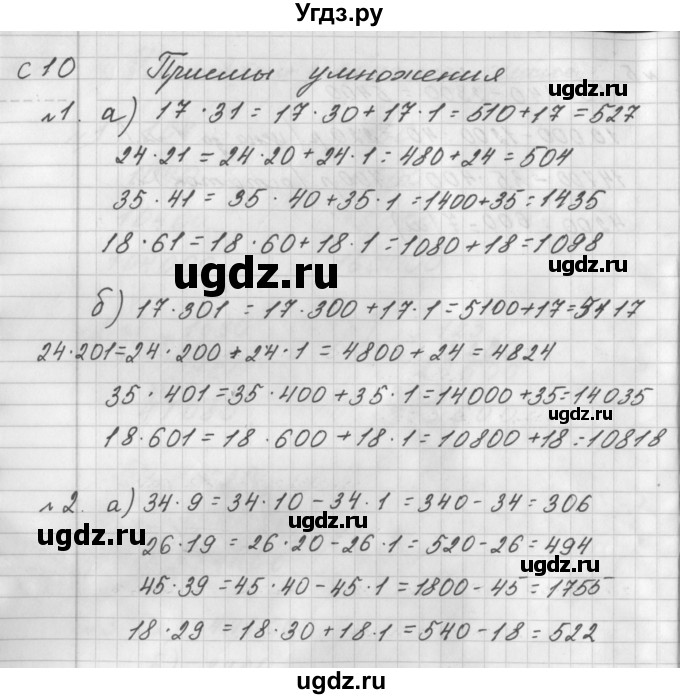 Угдз.ру
с 10 Приемы умножения
№1. а) 17·31 = 17·30+17·1 = 510+17 = 527
24·21 = 24·20+24·1 = 480+24 = 504
35·41 = 35·40+35·1 = 1400+35 = 1435
18·61 = 18·60+18·1 = 1080+18 = 1098
ugdz.ru
ugdz.ru
б) 17·301 = 17·300+17·1 = 5100+17 = 5117
24·201 = 24·200+24·1 = 4800+24 = 4824
35·401 = 35·400+35·1 = 14000+35 = 14035
ugdz.ru
18·601 = 18·600+18·1 = 10800+18 = 10818
№2. а) 34·9 = 34·10-34·1 = 340-34 = 306
ugdz.ru
ugdz.ru
26·19 = 26·20-26·1 = 520-26 = 494
ugdz.ru
45·39 = 45·40-45·1 = 1800-45 = 1755
18·29 = 18·30+18·1 = 540-18 = 522
ugdz.ru